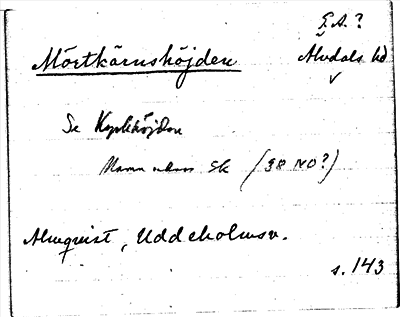 G.A.?
Mörtkärnshöjden
Älvdals hd
Se Kyrkhöjden
Namn utom Sk (38 NO?)
Almquist, Uddeholmsv.
s. 143